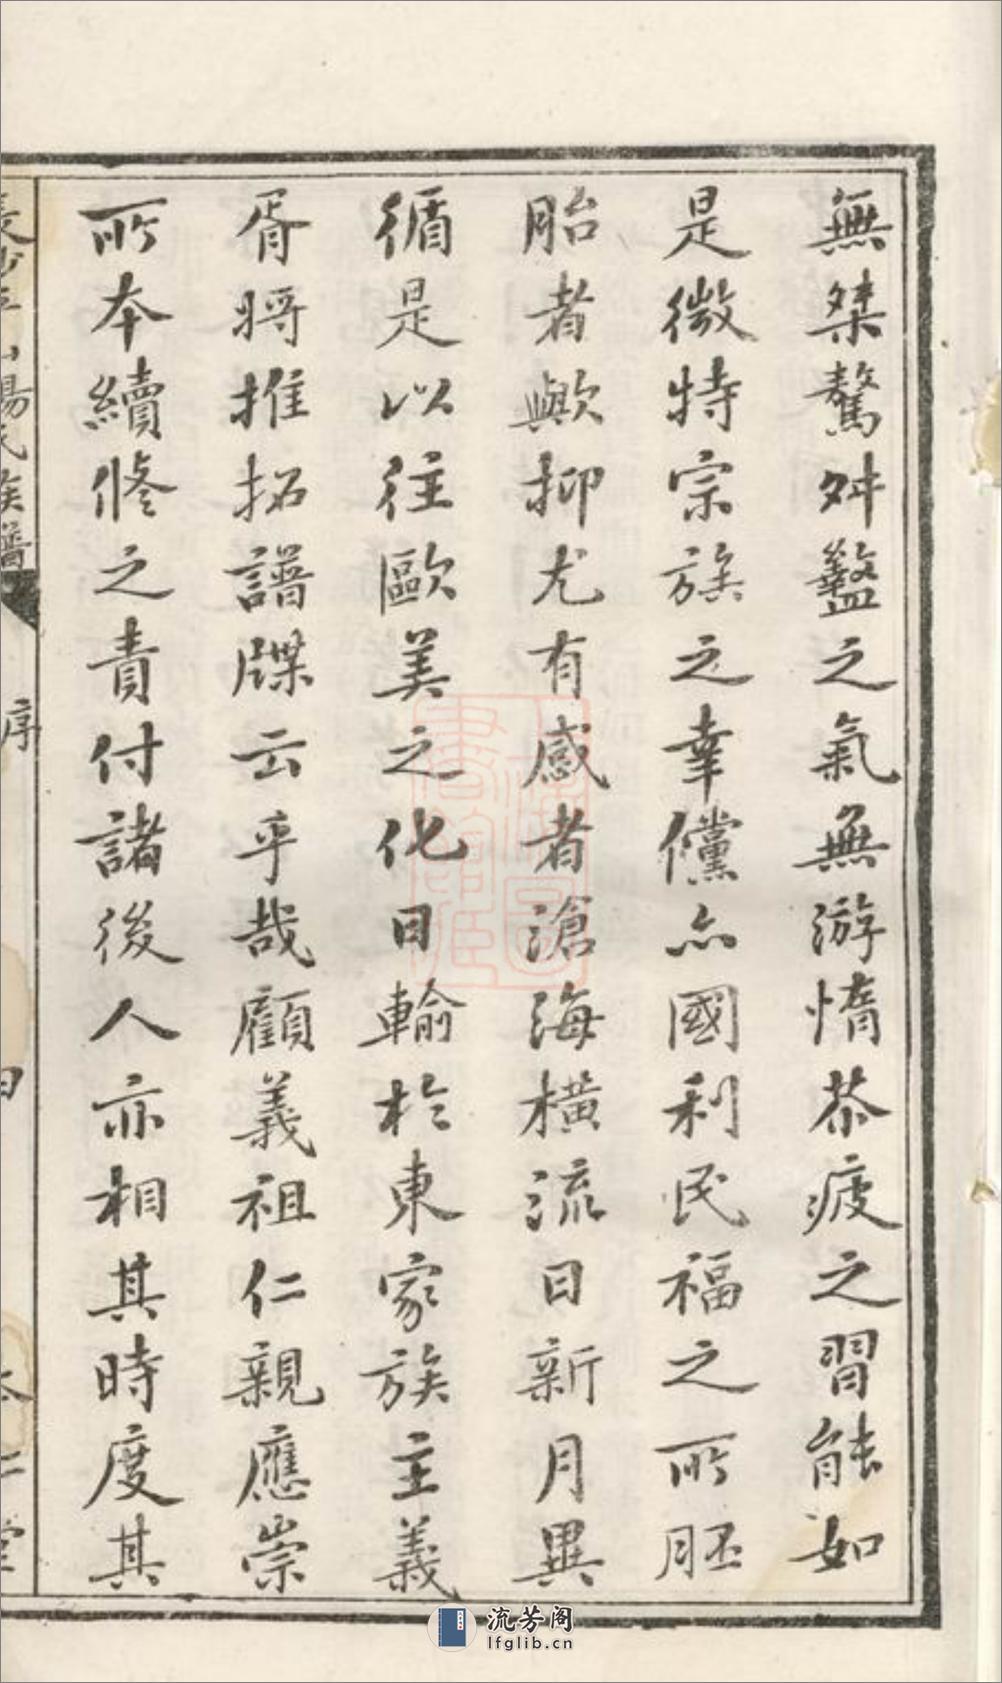 無桀驁舛盭之氣無游惰苶疲之習能如
是微特宗族之幸儻亦國利民福之所胚
胎者歟抑尤有感者滄海橫流日新月異
循是以往歐美之化日輸於東家族主義
胥將推拓譜牒云乎哉顧義祖仁親應崇
所本續修之責付諸後人亦相其時度其
序
流芳阁
lfglib.cn